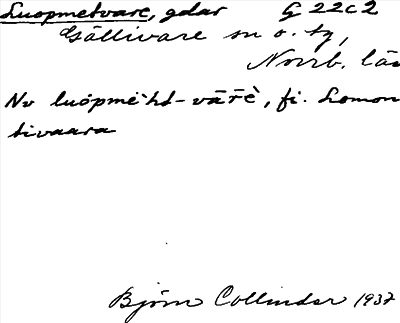 Luopmetvare, gdar G 22c2
Gällivare sn o. tg,
Norrb. län
Nv luòpmèht-vārè, fi. Lomon
tivaara
Björn Collinder 1937